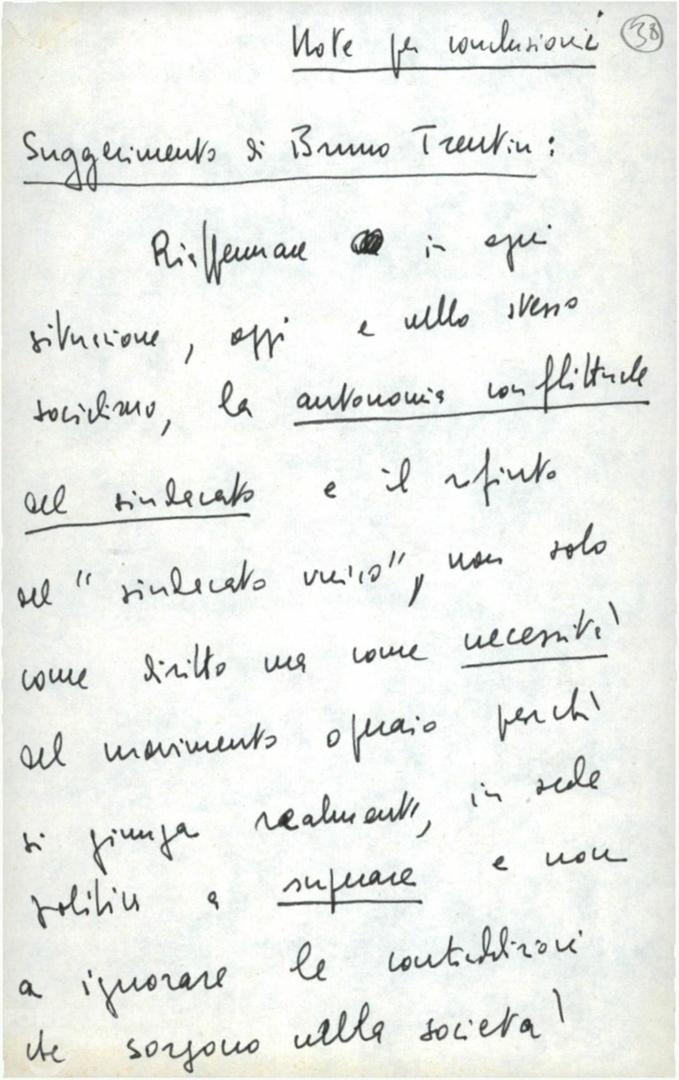 Note per conclusioni 38
Suggerimento di Bruno Trentin:
Riaffermare in ogni
situazione, oggi e nello stesso
socialismo, la autonomia conflittuale
del sindacato e il rifiuto
del "sindacato unico", non solo
come diritto ma come necessità
del movimento operaio perchè
si giunga realmente, in sede
politica a superare e non
a ignorare le contraddizioni
che sorgono nella società